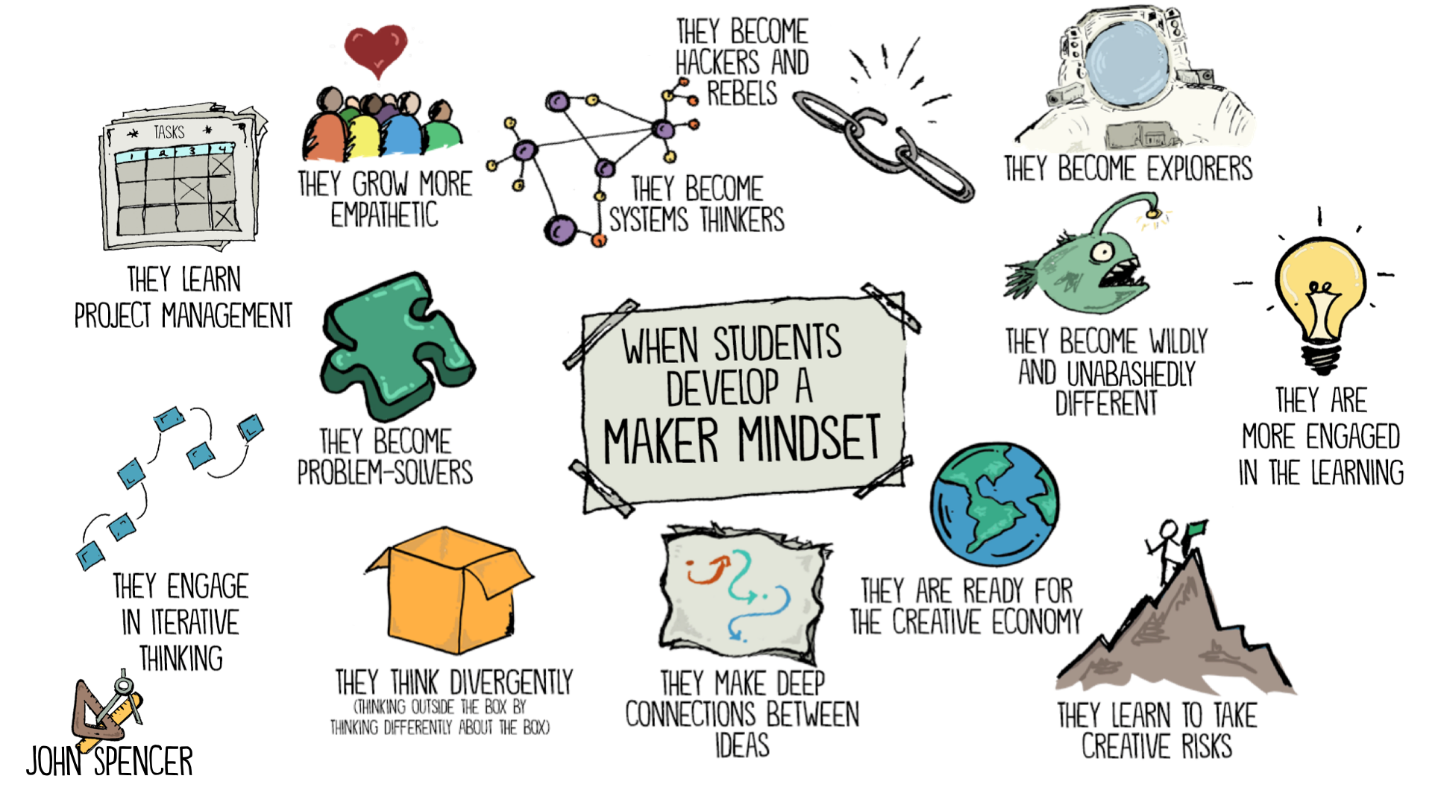 THEY BECOME
HACKERS AND
REBELS
TASKS
1 2 3 4
THEY GROW MORE
EMPATHETIC
THEY BECOME
SYSTEMS THINKERS
THEY BECOME EXPLORERS
THEY LEARN
PROJECT MANAGEMENT
WHEN STUDENTS
DEVELOP A
MAKER MINDSET
THEY BECOME WILDLY
AND UNABASHEDLY
DIFFERENT
THEY ARE
MORE ENGAGED
IN THE LEARNING
THEY BECOME
PROBLEM-SOLVERS
THEY ENGAGE
IN ITERATIVE
THINKING
THEY THINK DIVERGENTLY
(THINKING OUTSIDE THE BOX BY
THINKING DIFFERENTLY ABOUT THE BOX)
THEY MAKE DEEP
CONNECTIONS BETWEEN
IDEAS
THEY ARE READY FOR
THE CREATIVE ECONOMY
THEY LEARN TO TAKE
CREATIVE RISKS
JOHN SPENCER